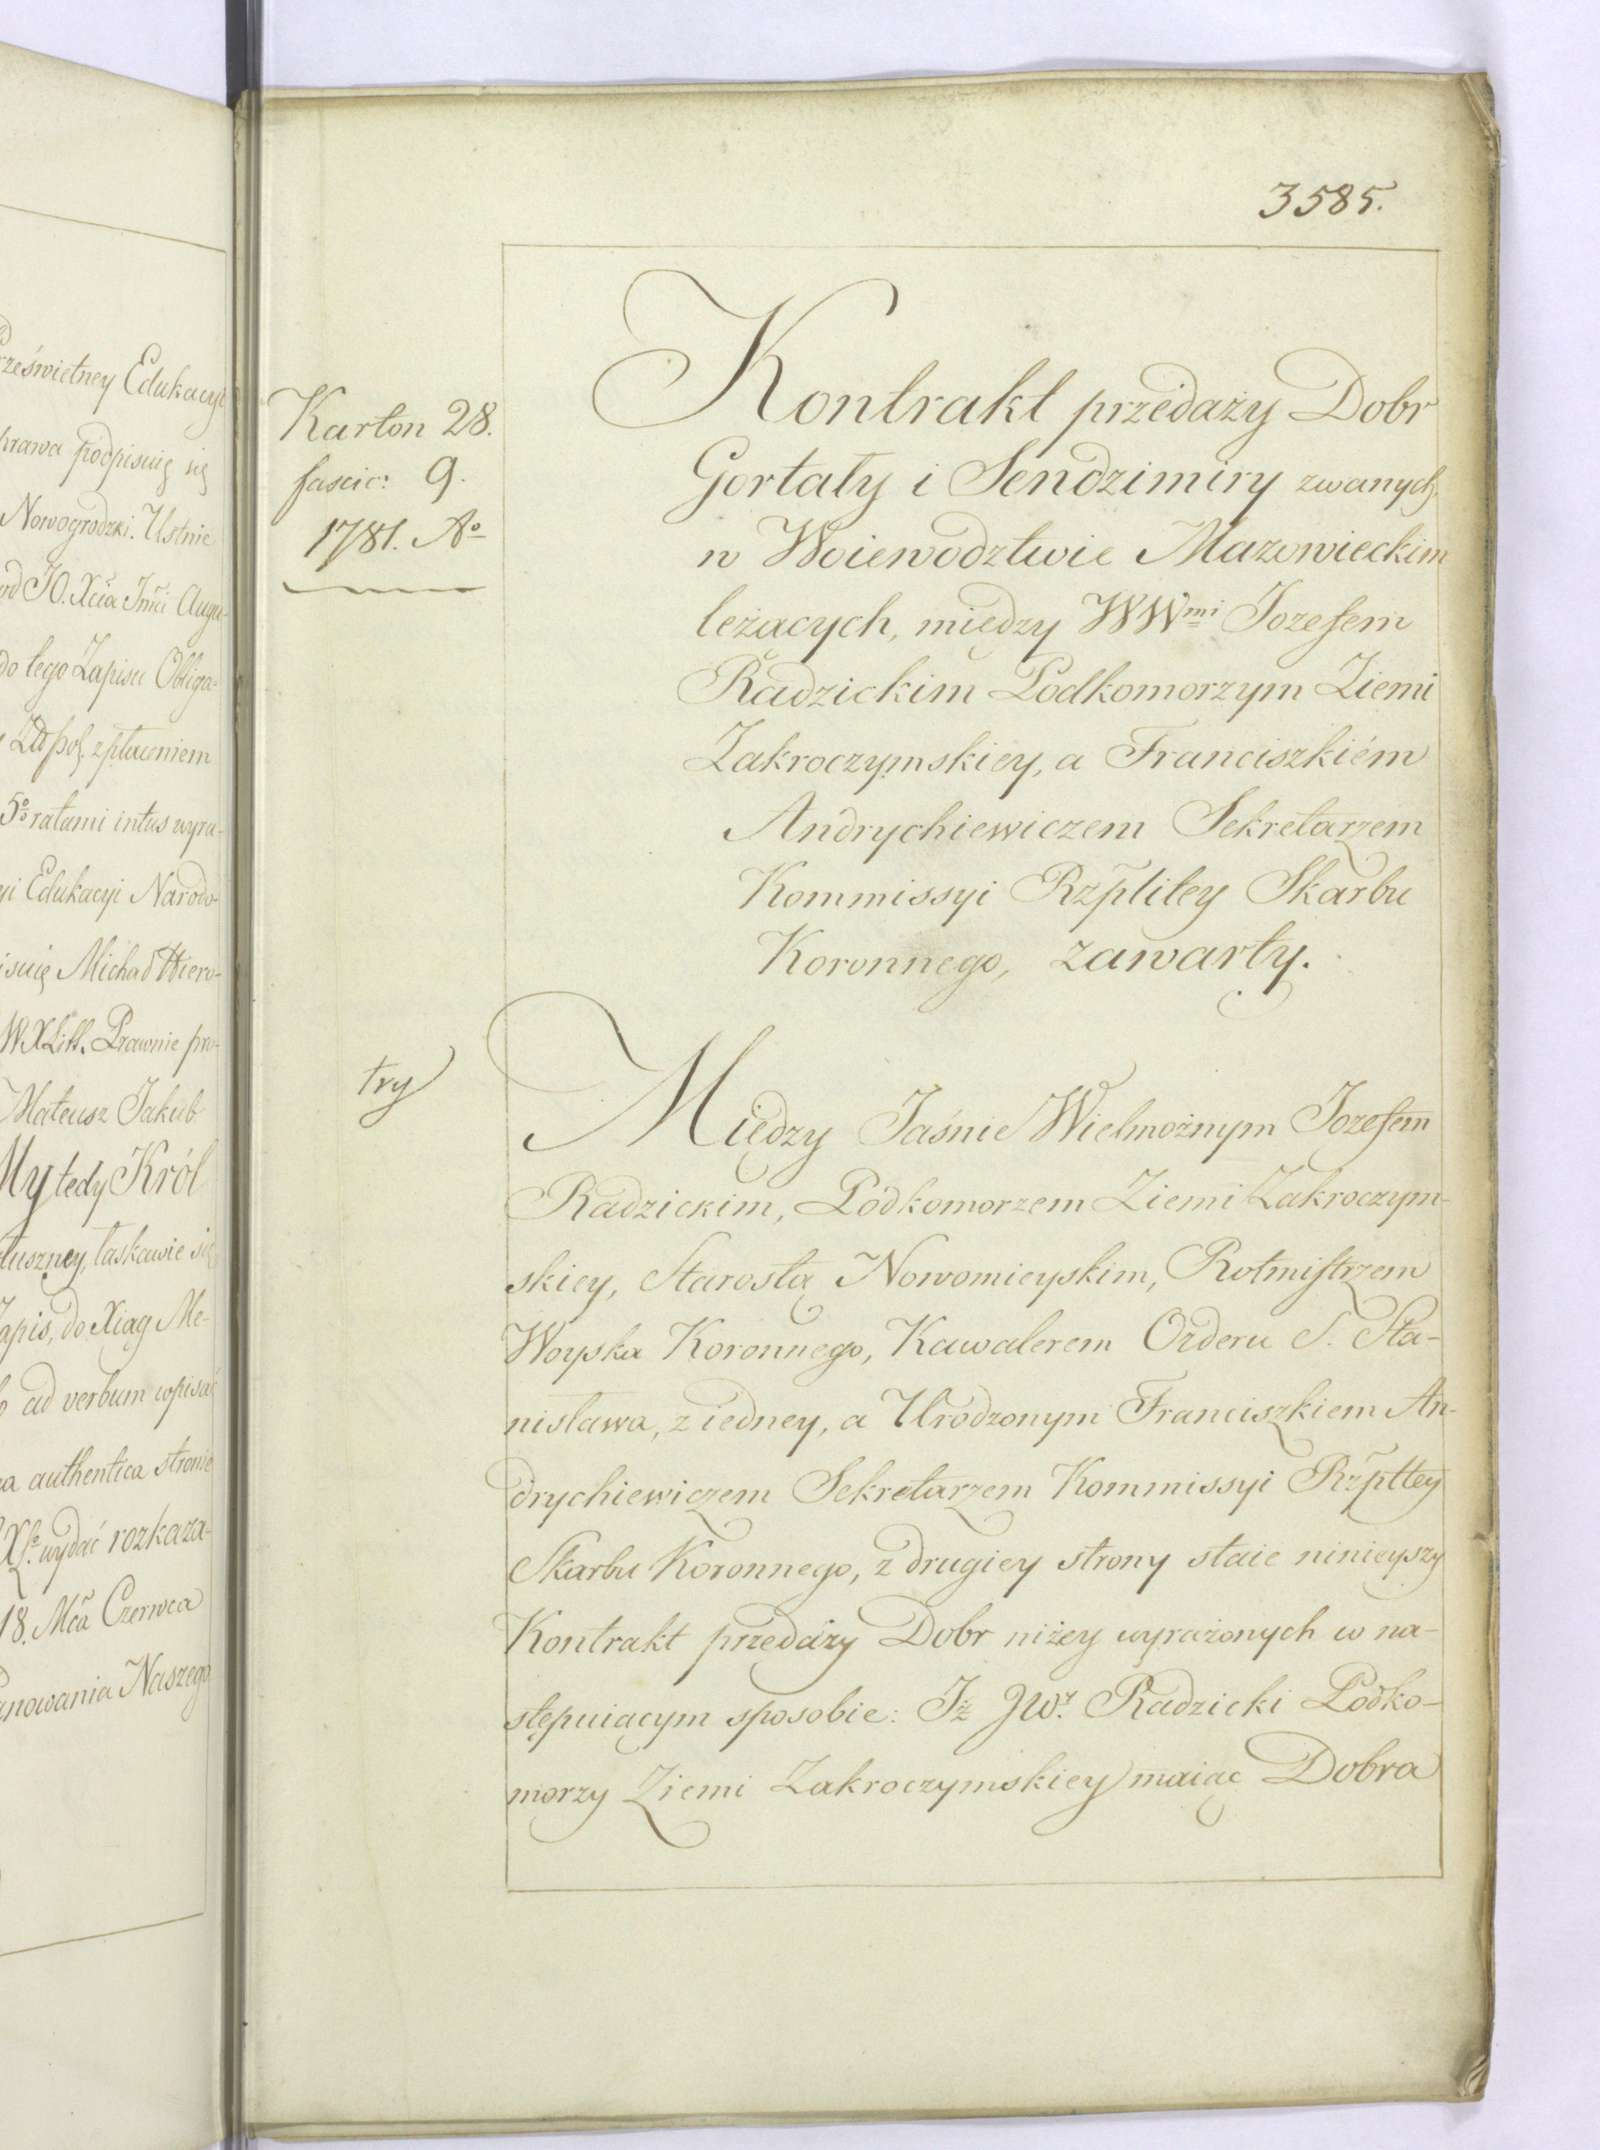 rześwietney Edukacyi
prawa podpisuię się
Nowogrodzki. Ustnie
od JO. Xcia Jmci Augu-
do tego Zapisu Obliga-
zpłaceniem
5º ratami intus wyra-
yi Edukacyi Narodo-
isuię Michał Hiero-
W.X.Litt. Prawnie pro-
Mateusz Jakub
My tedy Król
łuszney, łaskawie się
Zapis, do Xiąg Me-
ad verbum wpisać
authentica stronie
wydać rozkaza-
18. Mca Czerwca
anowania Naszego
3585.
Karton 28.
fascic: 9.
1781. Aº
Kontrakt przedaży Dobr
Gortaty i Sendzimiry zwanych,
w Woiewodztwie Mazowieckim
leżacych, między WWmi Jozefem
Radzickim Podkomorzym Ziemi
Zakroczymskiey, a Franciszkiém
Andrychiewiczem Sekretarzem
Kommissyi Rzplitey Skarbu
Koronnego, zawarty.
try
Między Jaśnie Wielmożnym Jozefem
Radzickim, Podkomorzem Ziemi Zakroczym-
skiey, Starostą Nowomieyskim, Rotmistrzem
Woyska Koronnego, Kawalerem Orderu S. Sta-
nisława, z iedney, a Urodzonym Franciszkiem An-
drychiewiczem Sekretarzem Kommissyi Rzpttey
Skarbu Koronnego, z drugiey strony staie ninieyszy
Kontrakt przedaży Dobr niżey wyrażonych w na-
stępuiacym sposobie: Jż JW. Radzicki Podko-
morzy Ziemi Zakroczymskiey maiąc Dobra